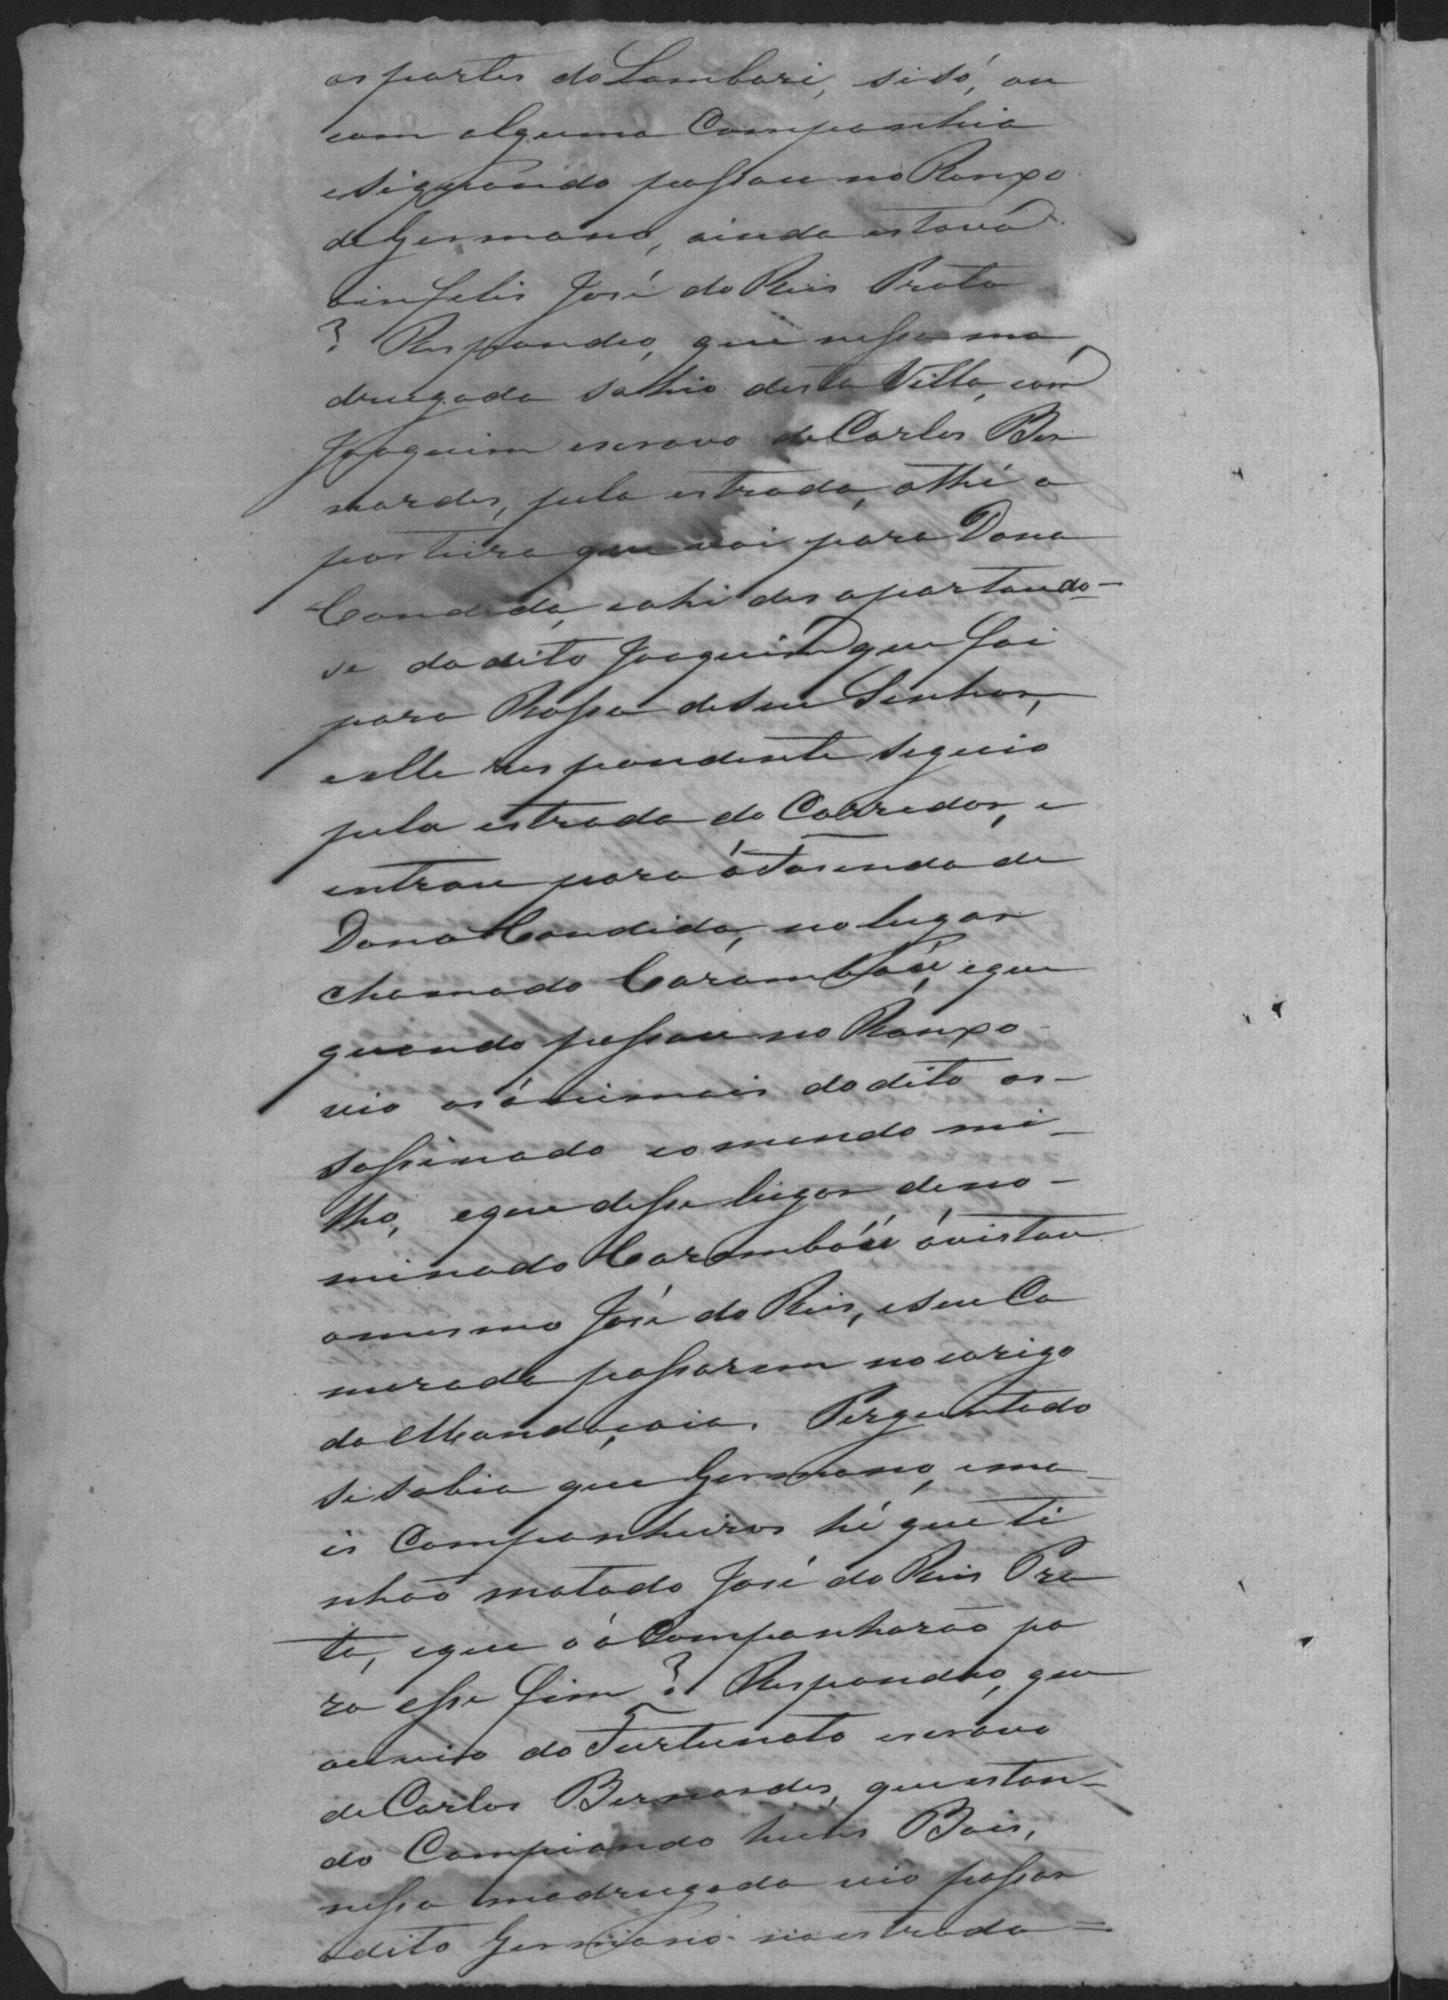 as partes do Lambari, si só, ou
com alguma Companhia
e si quando passou no Ranxo
de Germano, ainda estava
o infelis José do Reis Prata
? Respondeo, que nessa ma
drugada sahio desta Villa, com
Joaquim escravo de Carlos Ber
nardes, pela estrada, athé a
porteira que vai para Dona
Candida, e ahi desapartando-
se do dito Joaquim que foi
para Rossa de seu Senhor,
e elle respondente seguio
pela estrada do Corredor, e
entrou para á Fasenda de
Dona Candida, no lugar
chamado Carambáu, e que
quando passou no Ranxo
vio os ánimais do dito as-
sassinado comendo mi-
lho, e que desse lugar deno-
minado Carambáu ávistou
o mesmo José do Reis, e seu Ca
marada passarem no corigo
da Mandaçaia. Perguntado
si sabia que Germano, e ma
is Companheiros hé que ti
nhão matado José do Reis Pra
ta, e que o áCompanharão pa
ra esse fim? Respondeo, que
ouvio do Furtunato escravo
de Carlos Bernardes, que estan-
do Campiando huns Bois,
nessa madrugada vio passar
o dito Germano na estrada=